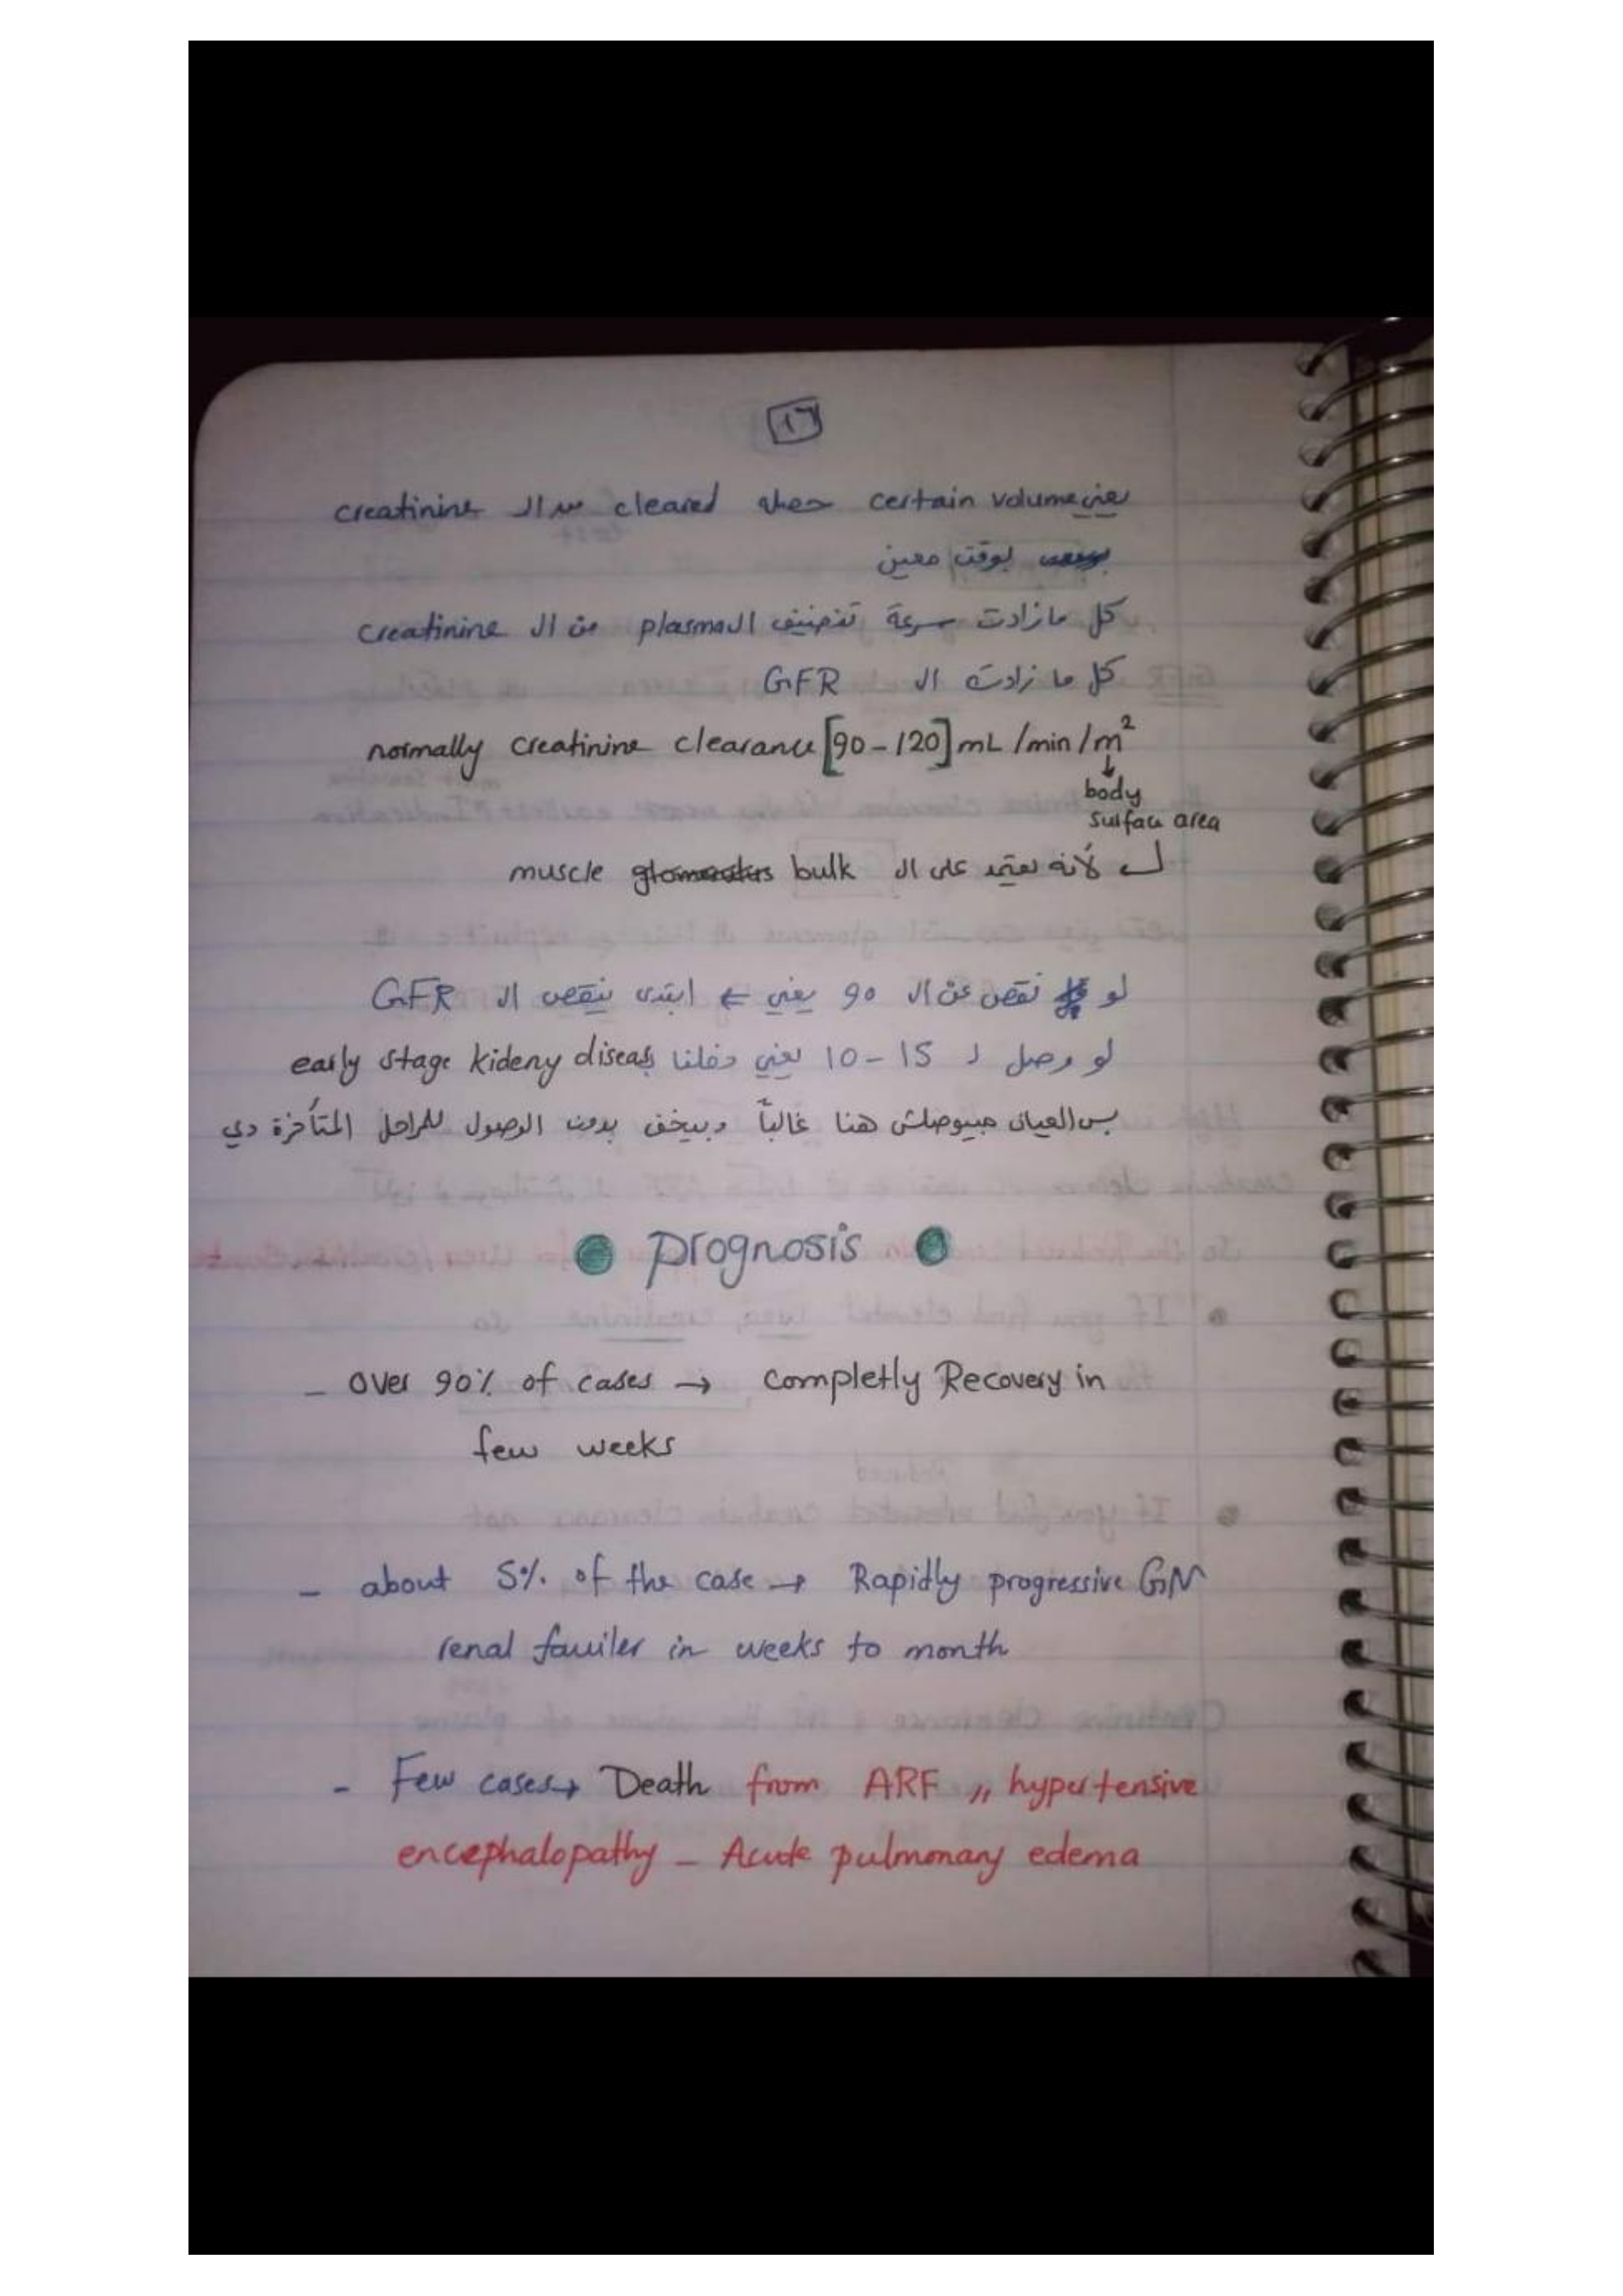 ١٦
يعني certain volume حصله cleared من ال creatinine
بوقت معين
كل ما زادت سرعة تنضيف ال plasma من ال creatinine
كل ما زادت ال GFR
normally creatinine clearance [90-120] mL /min/m²
↓
body
surface area
لأنه يعتمد على ال muscle bulk
لو نقص عن ال 90 يعني ⇐ ابتدى ينقص ال GFR
لو وصل ل 10-15 يعني دخلنا ب early stage kideny diseas
بس العيان مبيوصلش هنا غالباً وبيخف بدون الوصول للمراحل المتأخرة دي
prognosis
- Over 90% of cases → completly Recovery in
few weeks
- about 5% of the case → Rapidly progressive GN
renal fauiler in weeks to month
- Few cases → Death from ARF ,, hypertensive
encephalopathy - Acute pulmonary edema